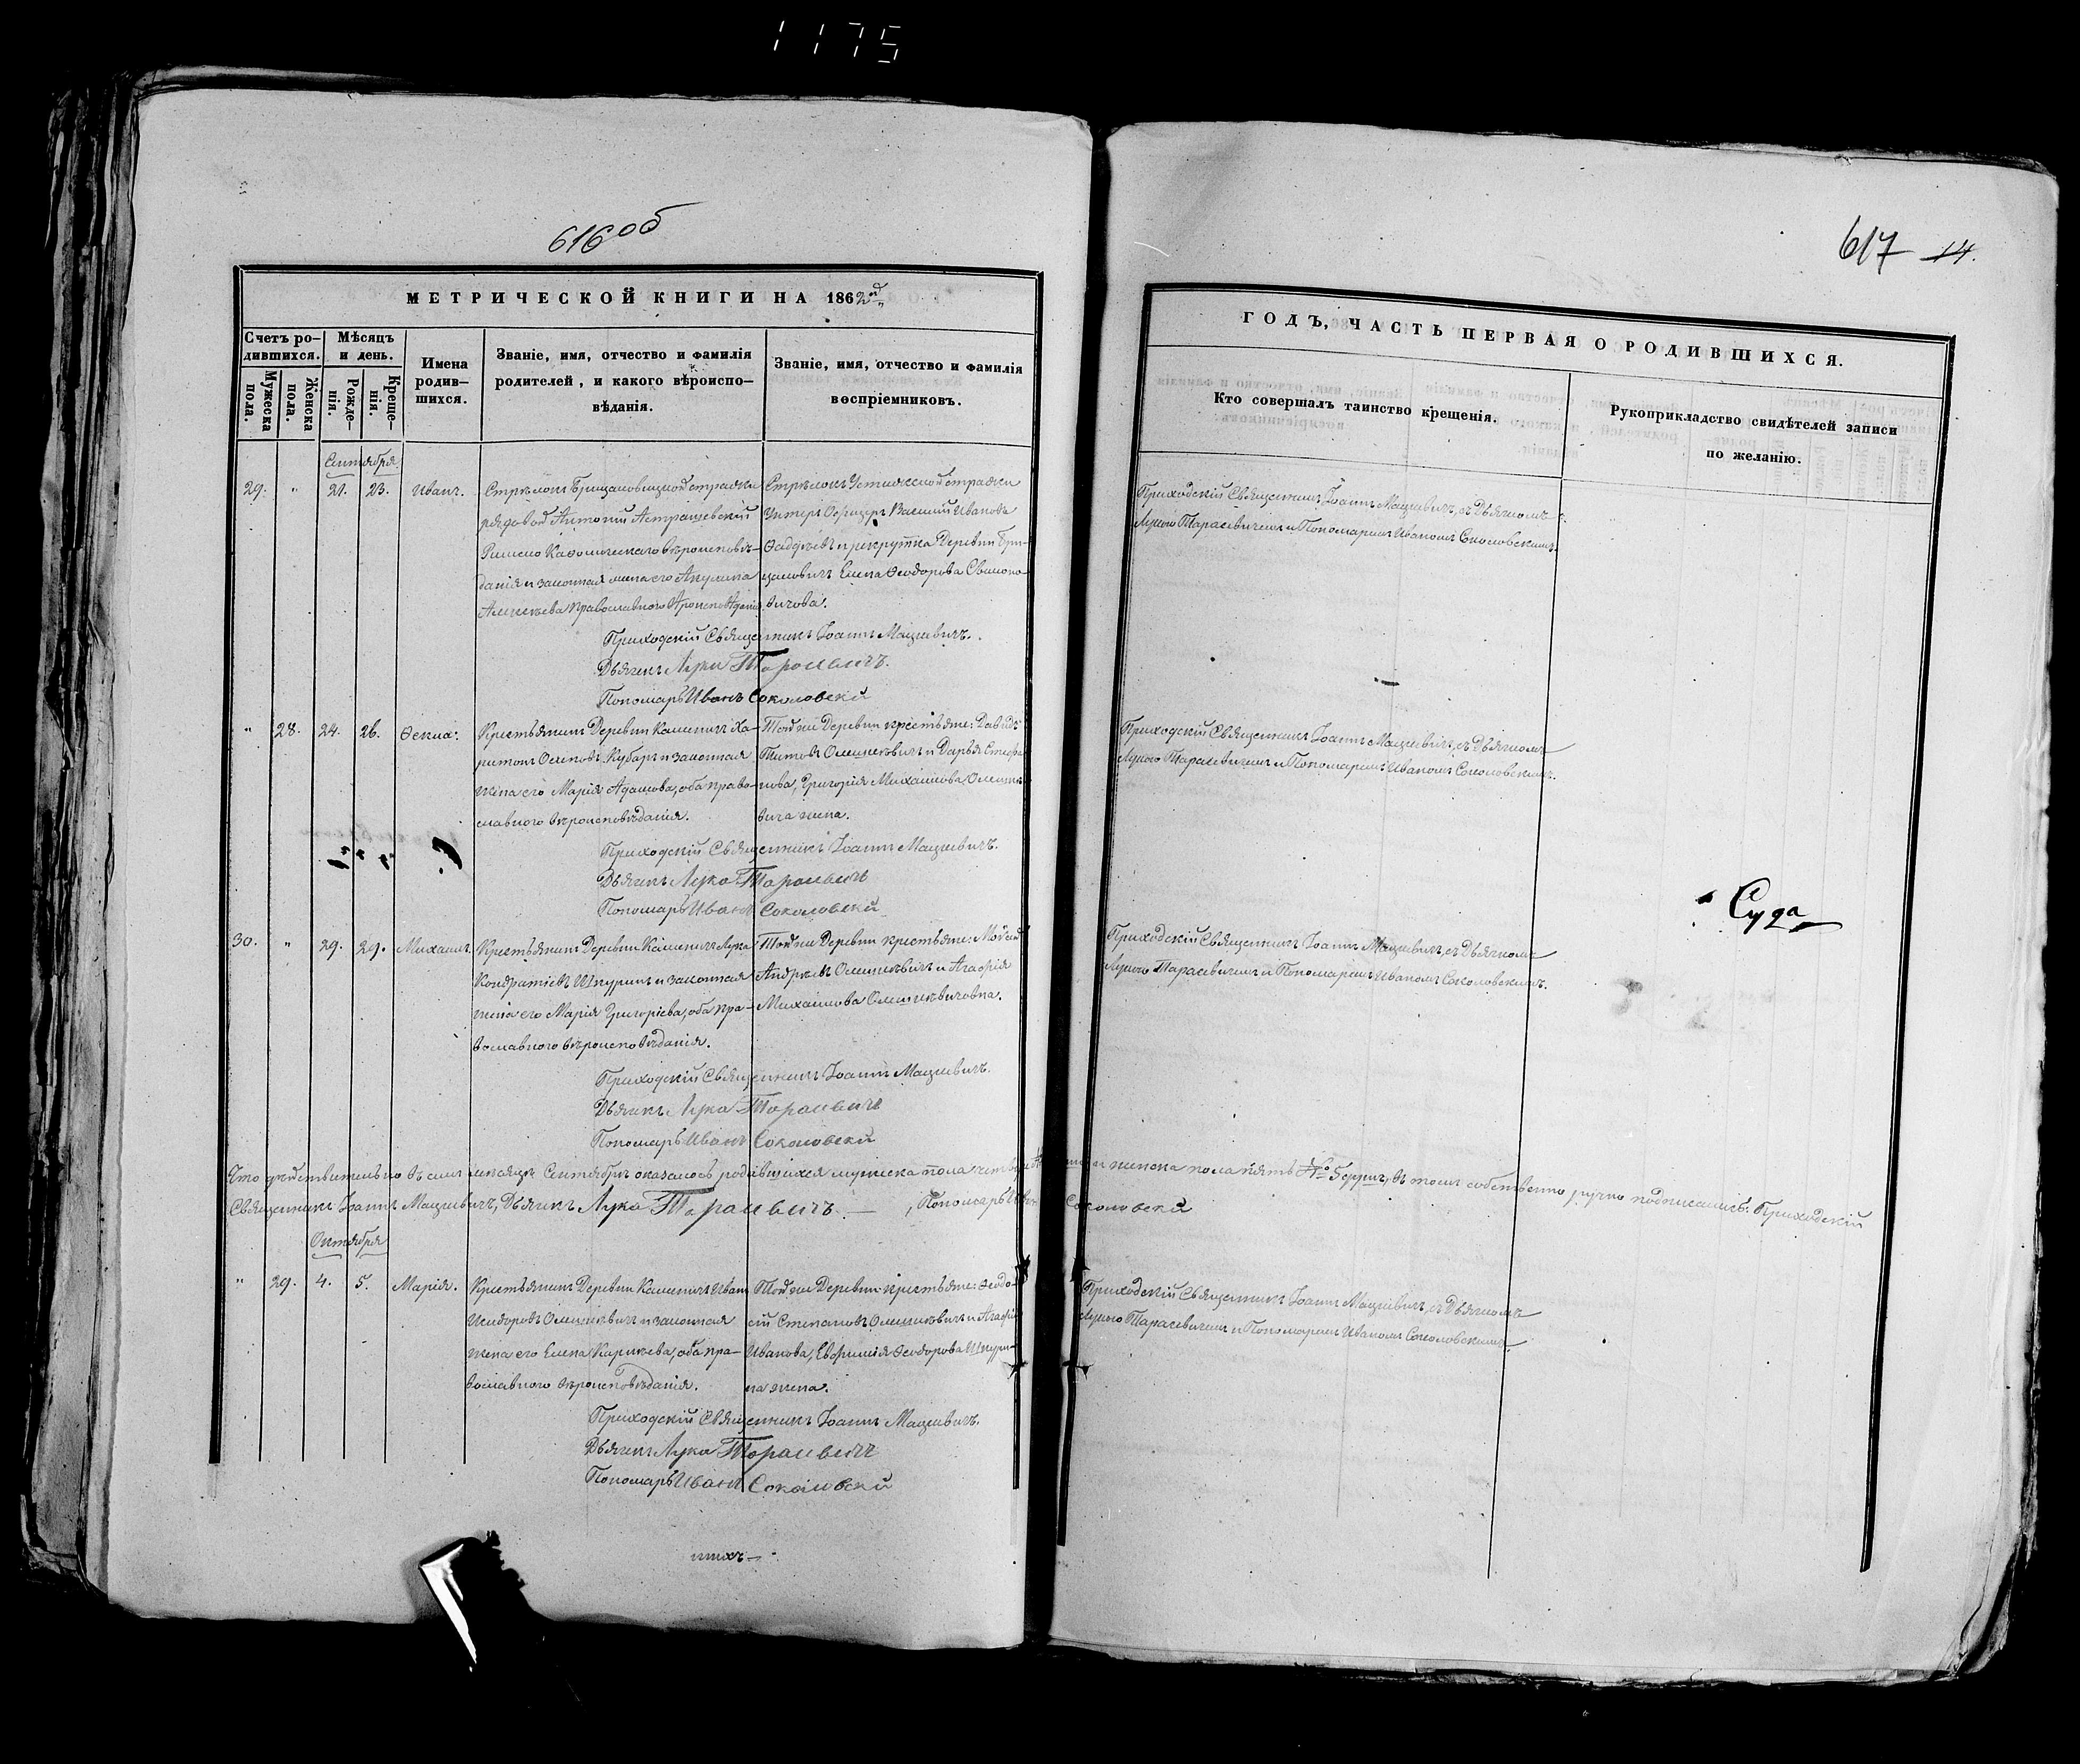 1175
616об
МЕТРИЧЕСКОЙ КНИГИ НА 1862й
Счетъ ро-
дившихся.
Мужеска пола.
Женска пола.
Мѣсяцъ
и день.
Рожде-
нія.
Креще-
нія.
Имена
родив-
шихся.
Званіе, имя, отчество и фамилія
родителей, и какого вѣроиспо-
вѣданія.
Званіе, имя, отчество и фамилія
воспріемниковъ.
Сентября
29. " 21. 23. Иванъ. Стрѣлокъ Брицаловицкой стражи
рядовой Антоній Астрашевскій
Римско Католическаго вѣроисповѣ-
данія и законная жена его Акулина
Алексѣева Православного
Стрѣлокъ стражи
Унтеръ Офицеръ Василій Ивановъ
и рекрутка Деревни Бри-
цаловичъ Елена Ѳеодорова
Приходскій Священникъ Іоаннъ Мацкевичъ.
Дьячекъ Лука Тарасевичъ.
Пономарь Иванъ Соколовскій
" 28. 24. 26. Ѳекла. Крестьянинъ Деревни Каменичъ Ха-
ритонъ Осиповъ Кубаръ и законная
жена его Марія Адамова, оба право-
славного вѣроисповѣданія.
Той же Деревни крестьяне: Давидъ
Титовъ Олешкевичъ и Дарья Стефа-
нова, Григорія Михайлова Олешке-
вича жена.
Приходскій Священникъ Іоаннъ Мацкевичъ.
Дьячекъ Лука Тарасевичъ
Пономарь Иванъ Соколовскій
30. " 29. 29. Михаилъ. Крестьянинъ Деревни Каменичъ Лука
Кондратіевъ Шкуринъ и законная
жена его Марія Григоріева, оба пра-
вославного вѣроисповѣданія.
Той же Деревни крестьяне: Мойсей
Андреевъ Олешкевичъ и Агафія
Михайлова Олешкевичовна.
Приходскій Священникъ Іоаннъ Мацкевичъ.
Дьячекъ Лука Тарасевичъ
Пономарь Иванъ Соколовскій
Что дѣйствительно въ семъ мѣсяцѣ Сентябрѣ оказалось родившихся мужеска пола
Священникъ Іоаннъ Мацкевичъ, Дьячекъ Лука Тарасевичъ. — , Пономарь Иванъ
Октября
" 29. 4. 5. Марія. Крестьянинъ Деревни Каменичъ Иванъ
Исидоровъ Олешкевичъ и законная
жена его Елена Карнѣева, оба пра-
вославного вѣроисповѣданія.
Той же Деревни крестьяне: Ѳеодо-
сій Степановъ Олешкевичъ и Агафія
Иванова, Евфимія Ѳеодорова Шкури-
на жена.
Приходскій Священникъ Іоаннъ Мацкевичъ.
Дьячекъ Лука Тарасевичъ
Пономарь Иванъ Соколовскій
617 14.
ГОДЪ, ЧАСТЬ ПЕРВАЯ О РОДИВШИХСЯ.
Кто совершалъ таинство крещенія.
Рукоприкладство свидѣтелей записи
по желанію.
Приходскій Священникъ Іоаннъ Мацкевичъ, съ Дьячкомъ
Лукою Тарасевичемъ и Пономаремъ Иваномъ Соколовскимъ.
Приходскій Священникъ Іоаннъ Мацкевичъ, съ Дьячкомъ
Лукою Тарасевичемъ и Пономаремъ Иваномъ Соколовскимъ.
Суда
Приходскій Священникъ Іоаннъ Мацкевичъ, съ Дьячкомъ
Лукою Тарасевичемъ и Пономаремъ Иваномъ Соколовскимъ.
и женска пола пять № 5 въ томъ собственно ручно подписались: Приходскій
Соколовскій
Приходскій Священникъ Іоаннъ Мацкевичъ, съ Дьячкомъ
Лукою Тарасевичемъ и Пономаремъ Иваномъ Соколовскимъ.